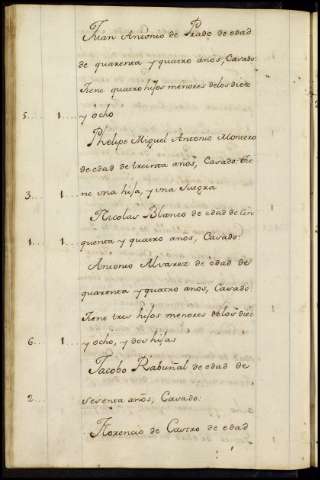 Juan Antonio de Prado de edad
de quarenta y quatro años, Casado.
Tiene quatro hijos menores de los diez
5. 1. y ocho
Phelipe Miguel Antonio Montero
de edad de treinta años, Casado. tie
3. 1. ne una hija, y una Suegra
Nicolas Blanco de edad de cin
1. 1. quenta y quatro años, Casado.
Antonio Alvarez de edad de
quarenta y quatro años, Casado
Tiene tres hijos menores de los diez
6. 1. y ocho, y dos hijas
Jacobo Rabuñal de edad de
2. sesenta años, Casado.
Florencio de Castro de edad